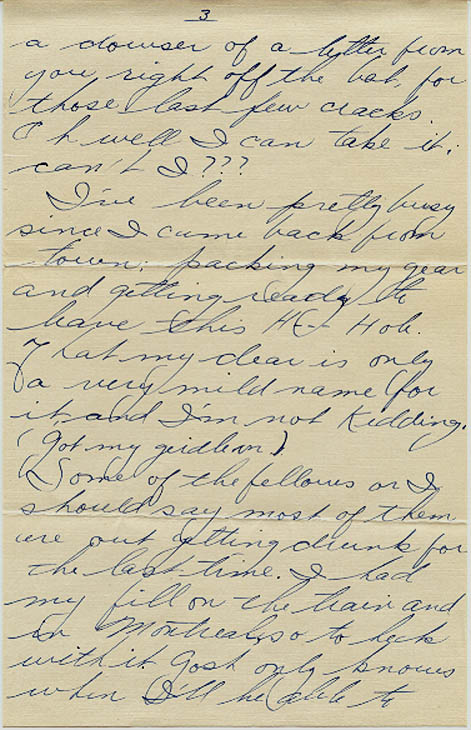 3
a dowser of a letter from
you right off the bat, for
those last few cracks.
Oh well I can take it,
can't I???
I've been pretty busy
since I came back from
town; packing my gear
and getting ready to
leave this H-- Hole.
That my dear is only
a very mild name for
it, and I'm not Kidding.
(Got my
Some of the fellows or I
should say most of them
are out getting drunk for
the last time. I had
my fill on the train and
in Montreal, so to heck
with it Gosh only knows
when I'll be able to